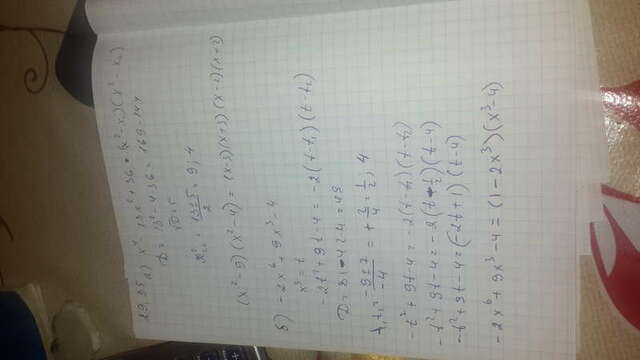 29.25 а) x⁴ - 13x² + 36 = (x² - x₁)(x² - x₂)
D = 13² - 4·36 = 169 - 144
√D = 5
x² = (13±5)/2 = 9; 4
(x² - 9)(x² - 4) = (x-3)(x+3)(x-2)(x+2)
б) -2x⁶ + 9x³ - 4
x³ = t
-2t² + 9t - 4 = -2(t - t₁)(t - t₂)
D = 81 - 4·2·4 = 49
t₁,t₂ = (-9±7)/-4 = + 2/4 = 1/2; 4
-t² + 9t - 4 = -2(t - t₁)(t - t₂)
-t² + 9t - 4 = -2(t - 1/2)(t - 4)
-t² + 9t - 4 = (-2t + 1)(t - 4)
-2x⁶ + 9x³ - 4 = (1 - 2x³)(x³ - 4)